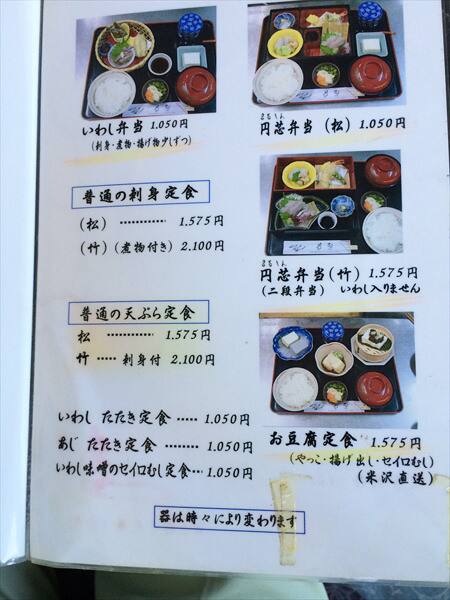 いわし弁当 1.050円
(刺身・煮物・揚げ物少しずつ)
普通の刺身定食
(松) ………… 1.575円
(竹) (煮物付き) 2.100円
普通の天ぷら定食
松 ………… 1.575円
竹 ‥‥‥ 刺身付 2.100円
いわし たたき定食 ‥‥‥ 1.050円
あじ たたき定食 ………… 1.050円
いわし味噌のセイロむし定食… 1.050円
円芯弁当 (松) 1.050円
円芯弁当(竹) 1.575円
(二段弁当) いわし入りません
お豆腐定食 1.575円
(やっこ・揚げ出し・セイロむし)
(米沢直送)
器は時々により変わります